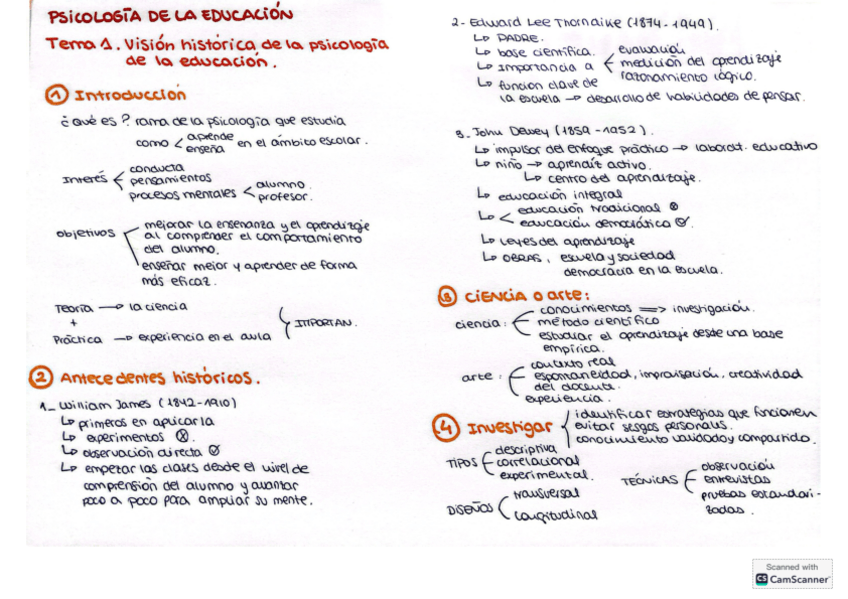 PSICOLOGÍA DE LA EDUCACIÓN
Tema 1. Visión histórica de la psicología
de la educación.
① Introducción
¿ qué es ? rama de la psicología que estudia
como < aprende
enseña en el ámbito escolar.
Interés < conducta
pensamientos
procesos mentales < alumno.
profesor.
objetivos
mejorar la enseñanza y el aprendizaje
al comprender el comportamiento
del alumno.
enseñar mejor y aprender de forma
más eficaz.
Teoría → la ciencia
+
IMPORTAN.
Práctica → experiencia en el aula
② Antecedentes históricos.
1_ William James (1842-1910)
↳ primeros en aplicarla
↳ experimentos ⊗.
↳ observación directa ✓
↳ empezar las clases desde el nivel de
comprensión del alumno y avanzar
poco a poco para ampliar su mente.
2- Edward Lee Thornaike (1874 - 1949).
↳ PADRE.
↳ base científica.
↳ importancia a < evaluación
medición del aprendizaje
razonamiento lógico.
↳ función clave de
la escuela → desarrollo de habilidades de pensar.
3. John Dewey (1859 - 1952).
↳ impulsor del enfoque práctico → laborat. educativo
↳ niño → aprendiz activo.
↳ centro del aprendizaje.
↳ educación integral
↳ < educación tradicional ⊗
educación democrática ✓.
↳ Leyes del aprendizaje
↳ OBRAS, escuela y sociedad
democracia en la escuela.
③ CIENCIA o arte:
ciencia:
conocimientos => investigación.
método científico
estudiar el aprendizaje desde una base
empírica.
arte:
contexto real
espontaneidad, improvisación, creatividad
del docente.
experiencia.
④ Investigar
identificar estrategias que funcionen
evitar sesgos personales.
conocimiento validado y compartido.
TIPOS
descriptiva
correlacional
experimental.
TÉCNICAS
observación
entrevistas
pruebas estandari-
zadas.
DISEÑOS
transversal
longitudinal
Scanned with
CS CamScanner